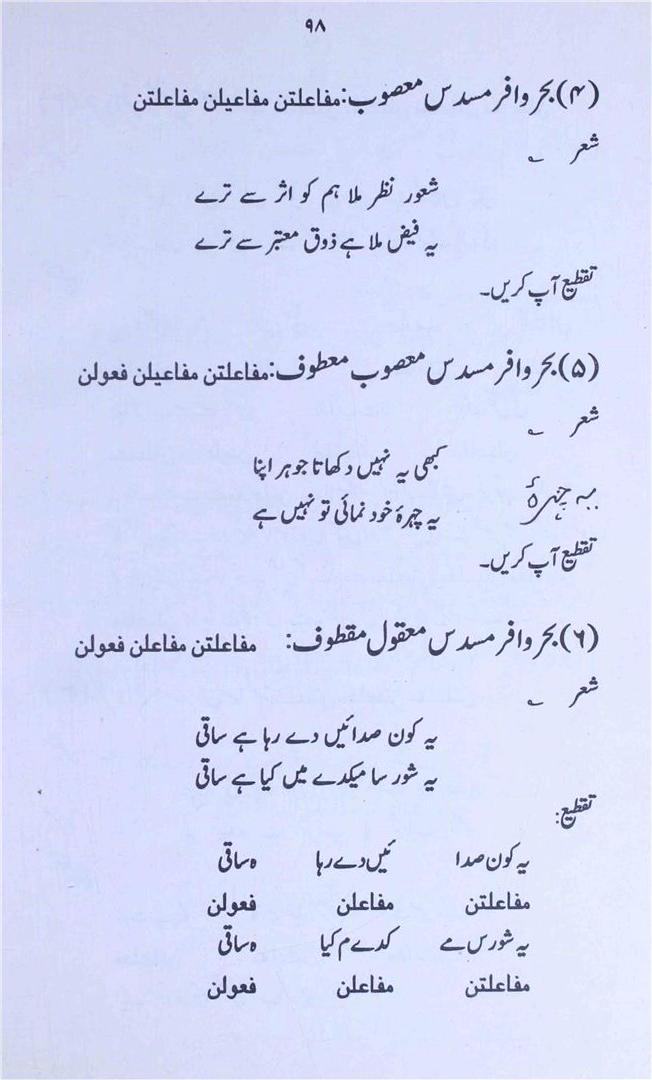 ۹۸
(۴) بحر وافر مسدس معصوب: مفاعلتن مفاعیلن مفاعلتن
شعر ؎
شعور نظر ملا ہم کو اثر سے ترے
یہ فیض ملا ہے ذوق معتبر سے ترے
تقطیع آپ کریں۔
(۵) بحر وافر مسدس معصوب معطوف: مفاعلتن مفاعیلن فعولن
شعر ؎
کبھی یہ نہیں دکھاتا جوہر اپنا
یہ چہرۂ خود نمائی تو نہیں ہے
یہ چہرۂ
تقطیع آپ کریں۔
(۶) بحر وافر مسدس معقول مقطوف: مفاعلتن مفاعلن فعولن
شعر ؎
یہ کون صدائیں دے رہا ہے ساقی
یہ شور سا میکدے میں کیا ہے ساقی
تقطیع:
یہ کون صدا ئیں دے رہا ہ ساقی
مفاعلتن مفاعلن فعولن
یہ شور س مے کدے م کیا ہ ساقی
مفاعلتن مفاعلن فعولن